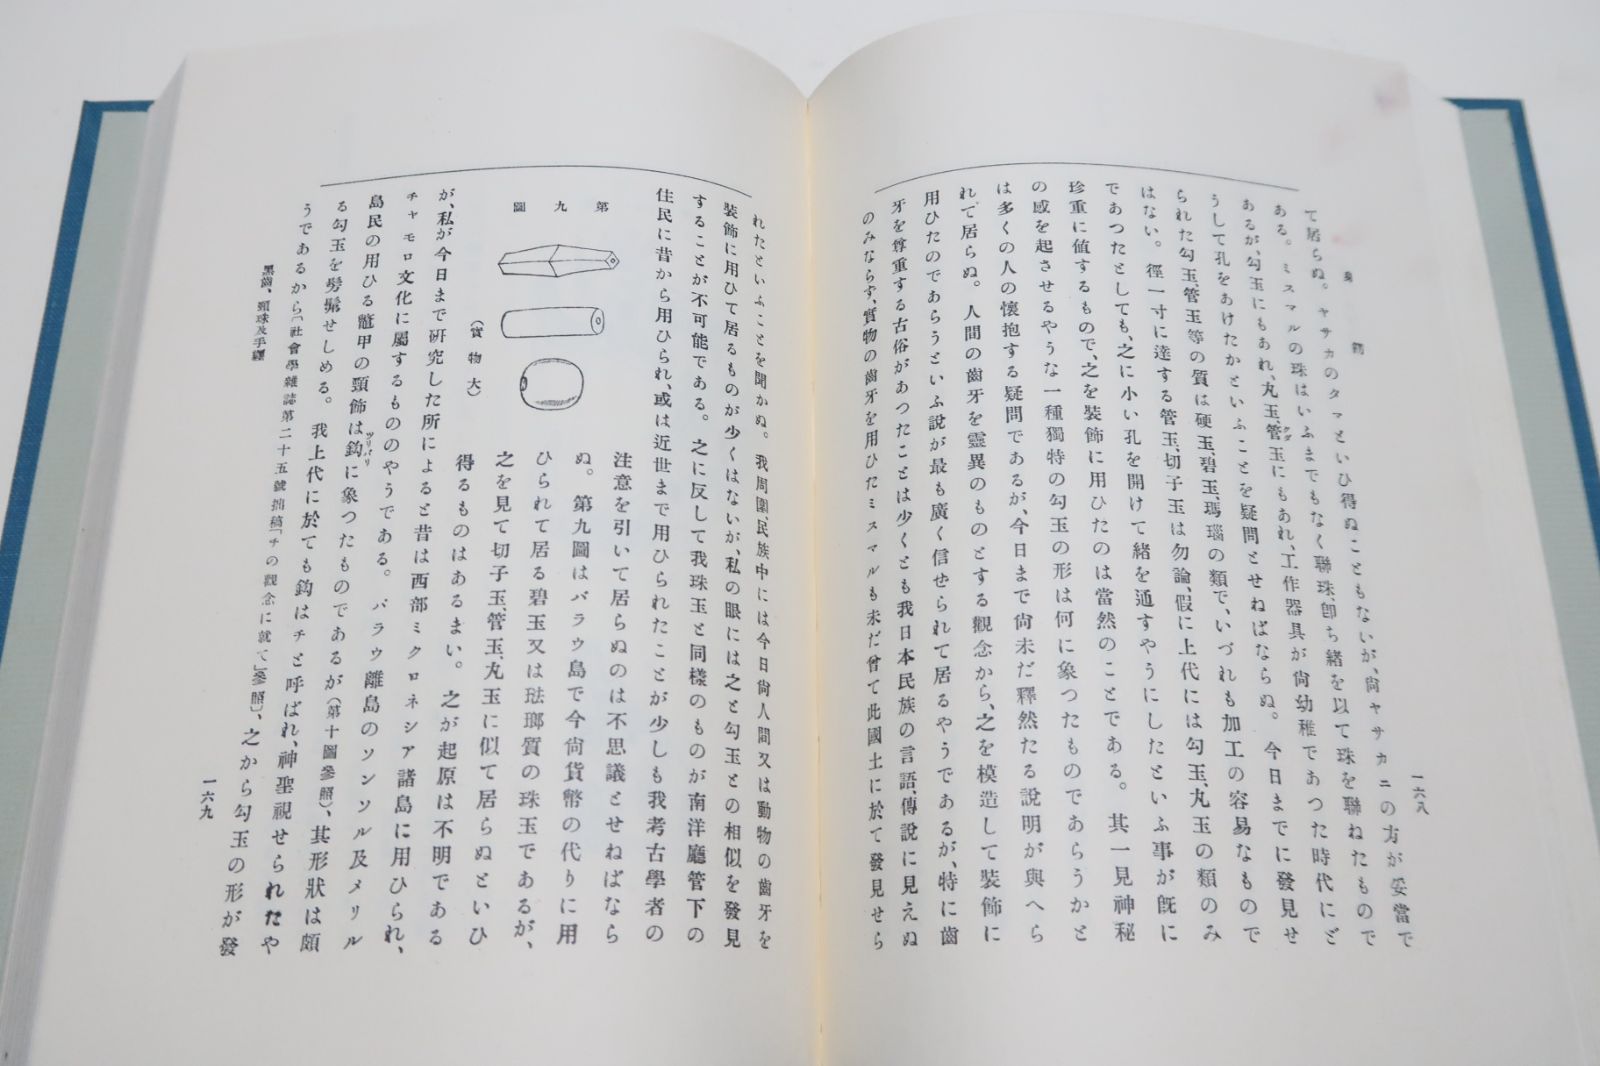 一六八
て居らぬ。ヤサカのタマといひ得ぬこともないが、尙ヤサカニの方が妥當で
ある。ミスマルの珠はいふまでもなく聯珠、卽ち緒を以て珠を聯ねたもので
あるが、勾玉にもあれ、丸玉、管玉にもあれ、工作器具が尙幼稚であつた時代にど
うして孔をあけたかといふことを疑問とせねばならぬ。今日までに發見せ
られた勾玉、管玉等の質は硬玉、碧玉、瑪瑙の類で、いづれも加工の容易なもので
はない。徑一寸に達する管玉、切子玉は勿論、假に上代には勾玉、丸玉の類のみ
であつたとしても、之に小い孔を開けて緖を通すやうにしたといふ事が旣に
珍重に値するもので、之を裝飾に用ひたのは當然のことである。其一見神秘
の感を起させるやうな一種獨特の勾玉の形は何に象つたものであらうかと
は多くの人の懷抱する疑問であるが、今日まで尙未だ釋然たる說明が與へら
れて居らぬ。人間の齒牙を靈異のものとする觀念から、之を模造して裝飾に
用ひたのであらうといふ說が最も廣く信せられて居るやうであるが、特に齒
牙を尊重する古俗があつたことは少くとも我日本民族の言語、傳說に見えぬ
のみならず、實物の齒牙を用ひたミスマルも未だ曾て此國土に於て發見せら
れたといふことを聞かぬ。我周圍、民族中には今日尙人間又は動物の齒牙を
裝飾に用ひて居るものが少くはないが、私の眼には之と勾玉との相似を發見
することが不可能である。之に反して我珠玉と同樣のものが南洋廳管下の
住民に昔から用ひられ、或は近世まで用ひられたことが少しも我考古學者の
第九圖
(實物大)
注意を引いて居らぬのは不思議とせねばなら
ぬ。第九圖はパラウ島で今尙貨幣の代りに用
ひられて居る碧玉又は琺瑯質の珠玉であるが、
之を見て切子玉、管玉、丸玉に似て居らぬといひ
得るものはあるまい。之が起原は不明である
が、私が今日まで硏究した所によると昔は西部ミクロネシア諸島に用ひられ、
チャモロ文化に屬するもののやうである。パラウ離島のソンソル及メリル
島民の用ひる鼈甲の頸飾は鈎ツリバリに象つたものであるが(第十圖參照)、其形狀は頗
る勾玉を髣髴せしめる。我上代に於ても鈎はチと呼ばれ、神聖視せられたや
うであるから〔社會學雜誌第二十五號拙稿「チの觀念に就て」參照〕、之から勾玉の形が發
黑齒、頸珠及手纒
一六九